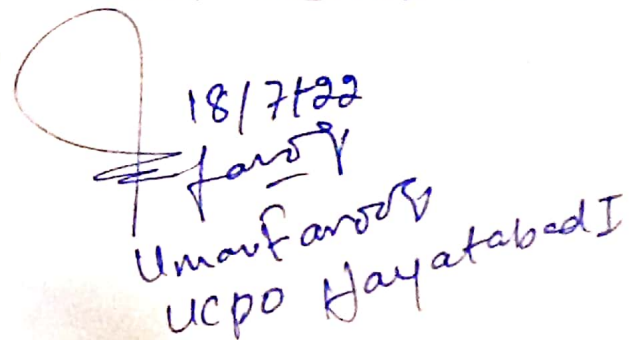 18/7/22
farooq
Umar Farooq
UCPO Hayatabad I